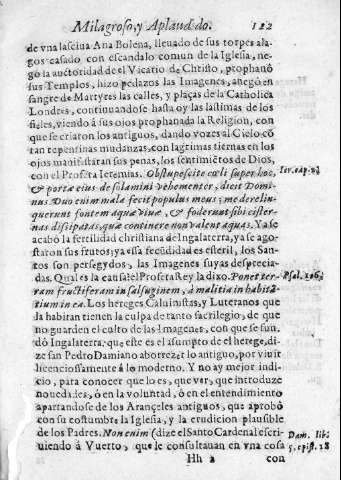 Milagroso, y Aplaud do. 122
de vna lasciua Ana Bolena, lleuado de sus torpes ala-
gos casado con escandalo comun de la Iglesia, ne-
gó la auctoridad de el Vicario de Christo, prophanó
sus Templos, hizo pedazos las Imagenes, anegó en
sangre de Martyres las calles, y plaças de la Catholica
Londres, continuandose hasta oy las lastimas de los
fieles, viendo á sus ojos prophanada la Religion, con
que se criaron los antiguos, dando vozes al Cielo cõ
tan repentinas mudanzas, con lagrimas tiernas en los
ojos manifiestaran sus penas, los sentimiẽtos de Dios,
con el Profeta Ieremias. Obstupescite cœli super hoc,
& portæ eius de solamini vehementer, dicit Domi-
nus Duo enim mala fecit populus meus; me dereli-
querunt fontem aquæ viuæ, & foderunt sibi cister-
nas dissipatas, quæ continere non valent aquas. Ya se
acabó la fertilidad christiana de Ingalaterra, ya se ago-
staron sus frutos; ya essa fecũdidad es esteril, los San-
tos son persegydos, las Imagenes suyas desprecia-
das. Qual es la causa? el Profeta Rey la dixo. Ponet ter-
ram fructiferam in salsuginem, à malitia in habitã-
tium in ea. Los hereges Caluinistas, y Luteranos que
la habitan tienen la culpa de tanto sacrilegio, de que
no guarden el culto de las Imagenes, con que se fun-
dó Ingalaterra: que este es el assumpto de el herege, di-
ze san Pedro Damiano aborrezer lo antiguo, por viuir
licenciossamente á lo moderno. Y no ay mejor indi-
cio, para conocer que lo es, que ver, que introduze
nouedades, ó en la voluntad, ó en el entendimiento
apartandose de los Arançeles antiguos, que aprobó
con su costumbre la Iglesia, y la erudicion plausible
de los Padres. Non enim (dize el Santo Cardenal escri-
uiendo á Vuerto, que le consultauan en vna cosa
Hh 2 con
Ier. cap. 2.
Psal. 106.
Dam. lib.
5. epist. 18